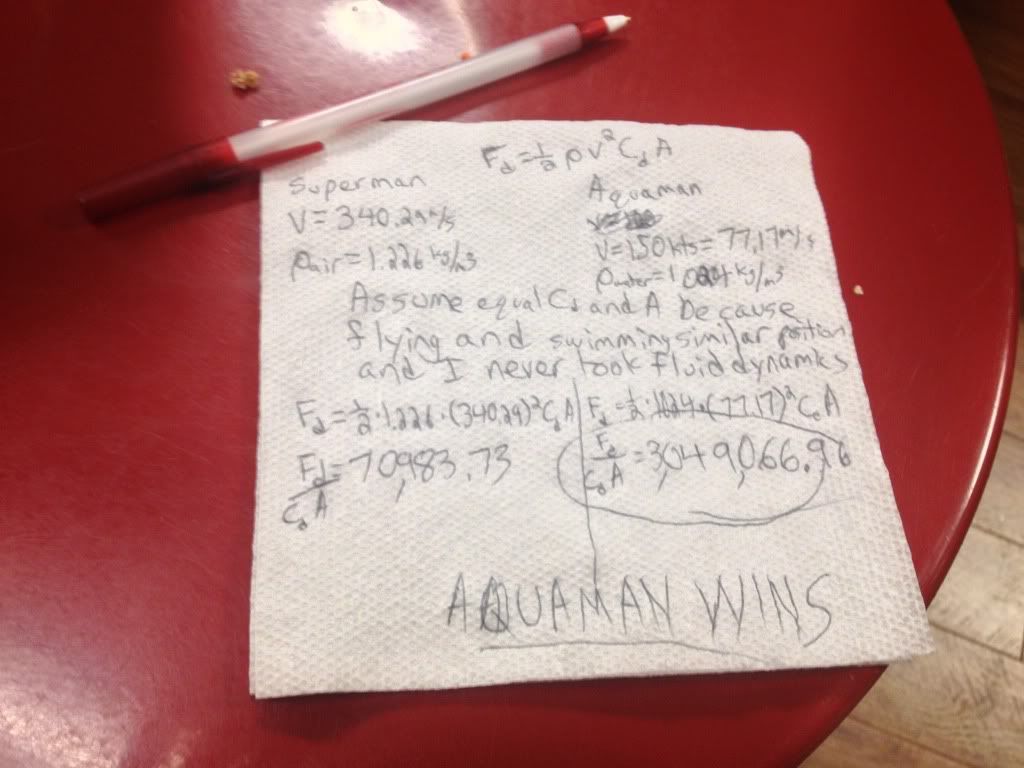 F_d = ½ ρ v² C_d A
Superman
V = 340.29 m/s
ρair = 1.226 kg/m3
Aquaman
V = 150 kts = 77.17 m/s
ρwater = 1024 kg/m3
Assume equal C_d and A because
flying and swimming similar position
and I never took fluid dynamics
F_d = ½ · 1.226 · (340.29)² C_d A
F_d / C_d A = 70,983.73
F_d = ½ · 1024 · (77.17)² C_d A
F_d / C_d A = 3,049,066.96
AQUAMAN WINS